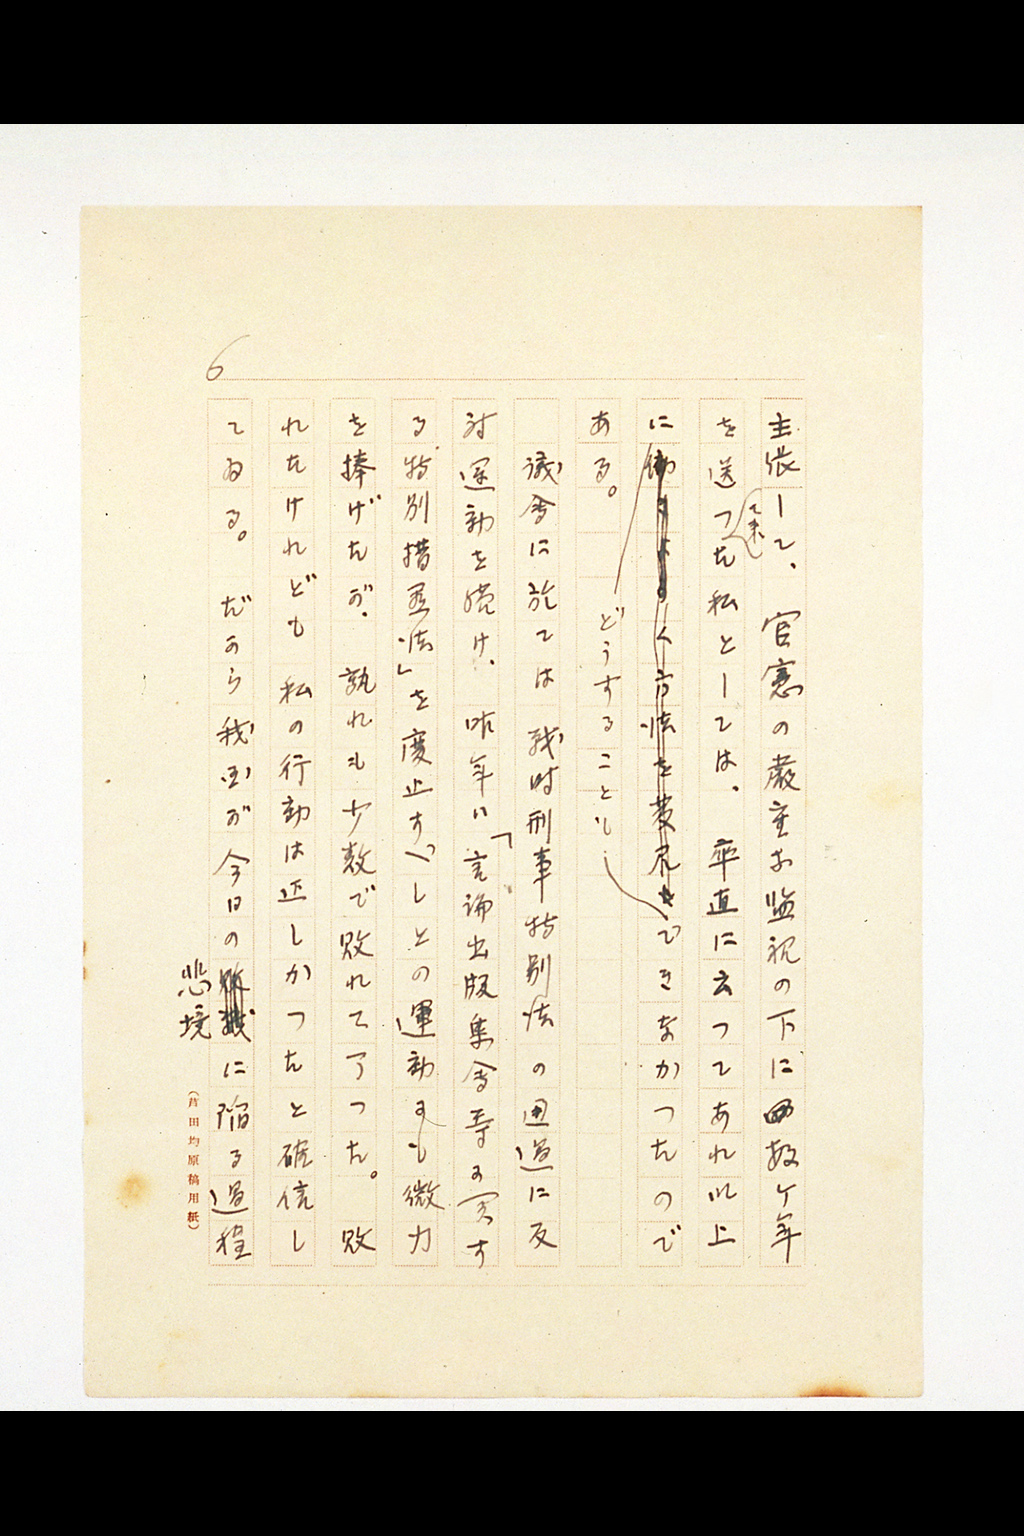 6
主張して、官憲の厳重な監視の下に数ケ年
を送つて来た私としては、率直に云つてあれ以上
に働きかくる方法を発見
どうすることも
できなかつたので
ある。
議会に於ては戦時刑事特別法の通過に反
対運動を続け、昨年は「言論出版集会等に関す
る特別措置法」を廃止すべしとの運動にも微力
を捧げたが、孰れも少数で敗れて了つた。敗
れたけれども私の行動は正しかつたと確信し
てゐる。だから我国が今日の敗戦に陥る過程
悲境
(芦田均原稿用紙)